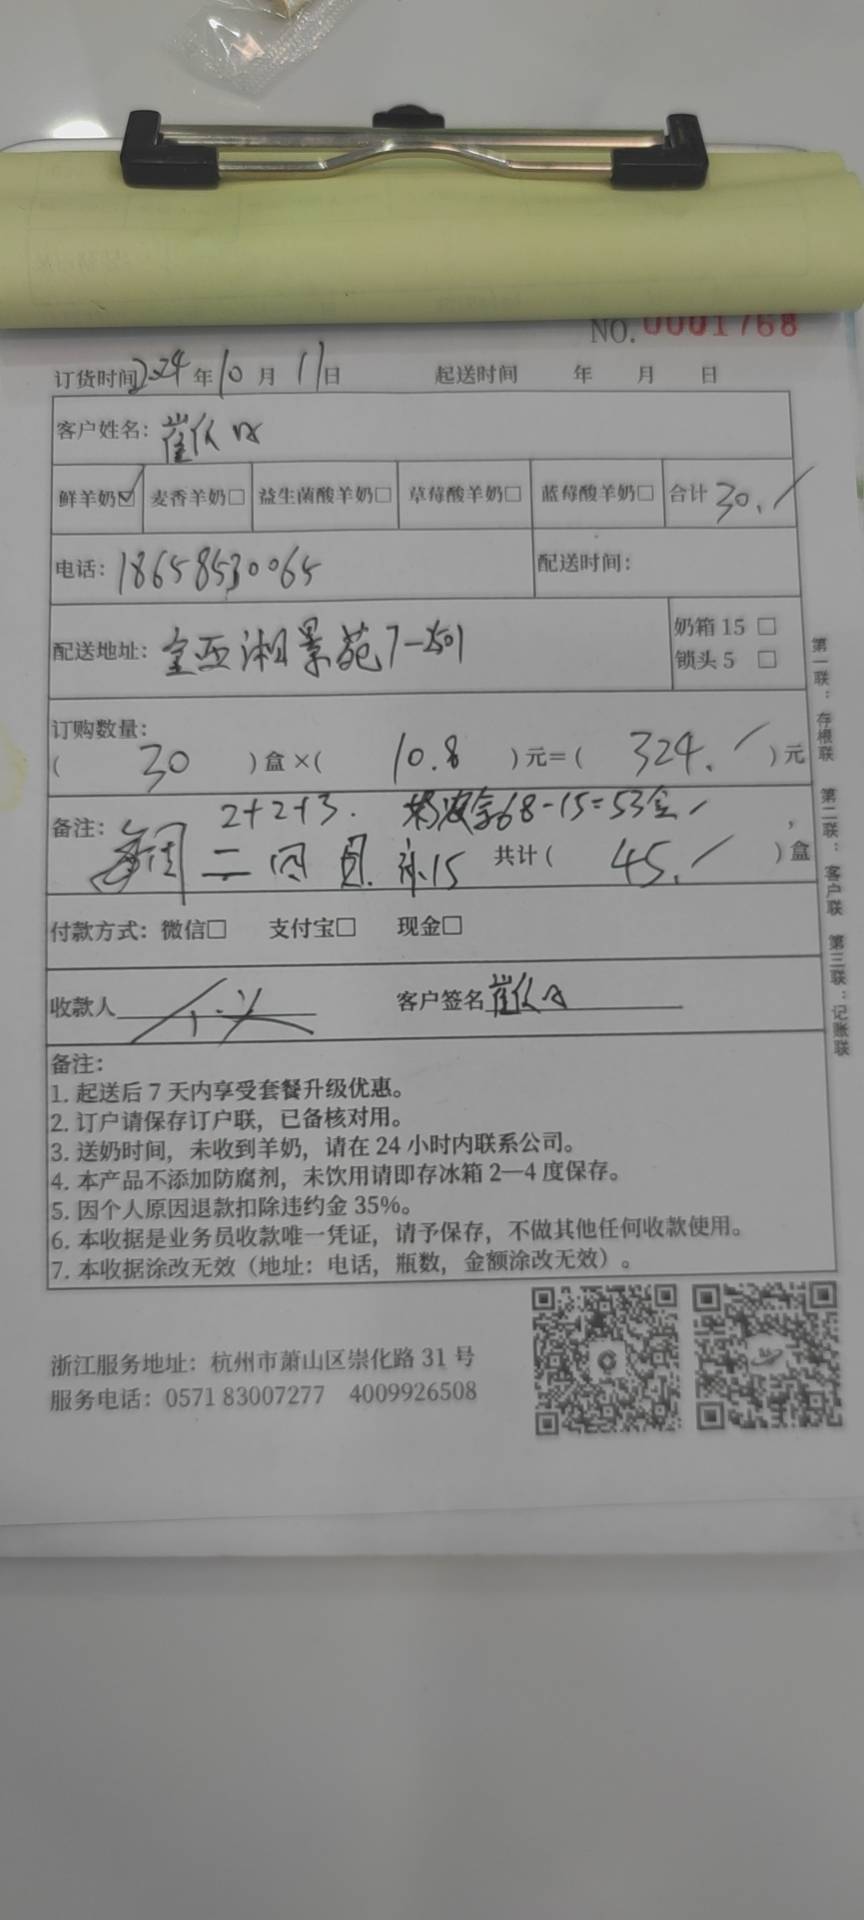 NO. 0001768
订货时间 2024 年 10 月 11 日 起送时间 年 月 日
客户姓名： 崔
鲜羊奶☑ 麦香羊奶□ 益生菌酸羊奶□ 草莓酸羊奶□ 蓝莓酸羊奶□ 合计 30.
电话： 18658530065 配送时间：
配送地址： 金亚湘景苑7-2-501 奶箱 15 □
锁头 5 □
订购数量：
( 30 ) 盒 ×( 10.8 ) 元= ( 324. ) 元
2+2+3. 68-15=53盒
备注： 每周 二 四 15 共计 ( 45. ) 盒
付款方式： 微信□ 支付宝□ 现金□
收款人 客户签名 崔
备注：
1. 起送后 7 天内享受套餐升级优惠。
2. 订户请保存订户联，已备核对用。
3. 送奶时间，未收到羊奶，请在 24 小时内联系公司。
4. 本产品不添加防腐剂，未饮用请即存冰箱 2—4 度保存。
5. 因个人原因退款扣除违约金 35%。
6. 本收据是业务员收款唯一凭证，请予保存，不做其他任何收款使用。
7. 本收据涂改无效（地址：电话，瓶数，金额涂改无效）。
第一联：存根联 第二联：客户联 第三联：记账联
浙江服务地址：杭州市萧山区崇化路 31 号
服务电话：0571 83007277 4009926508